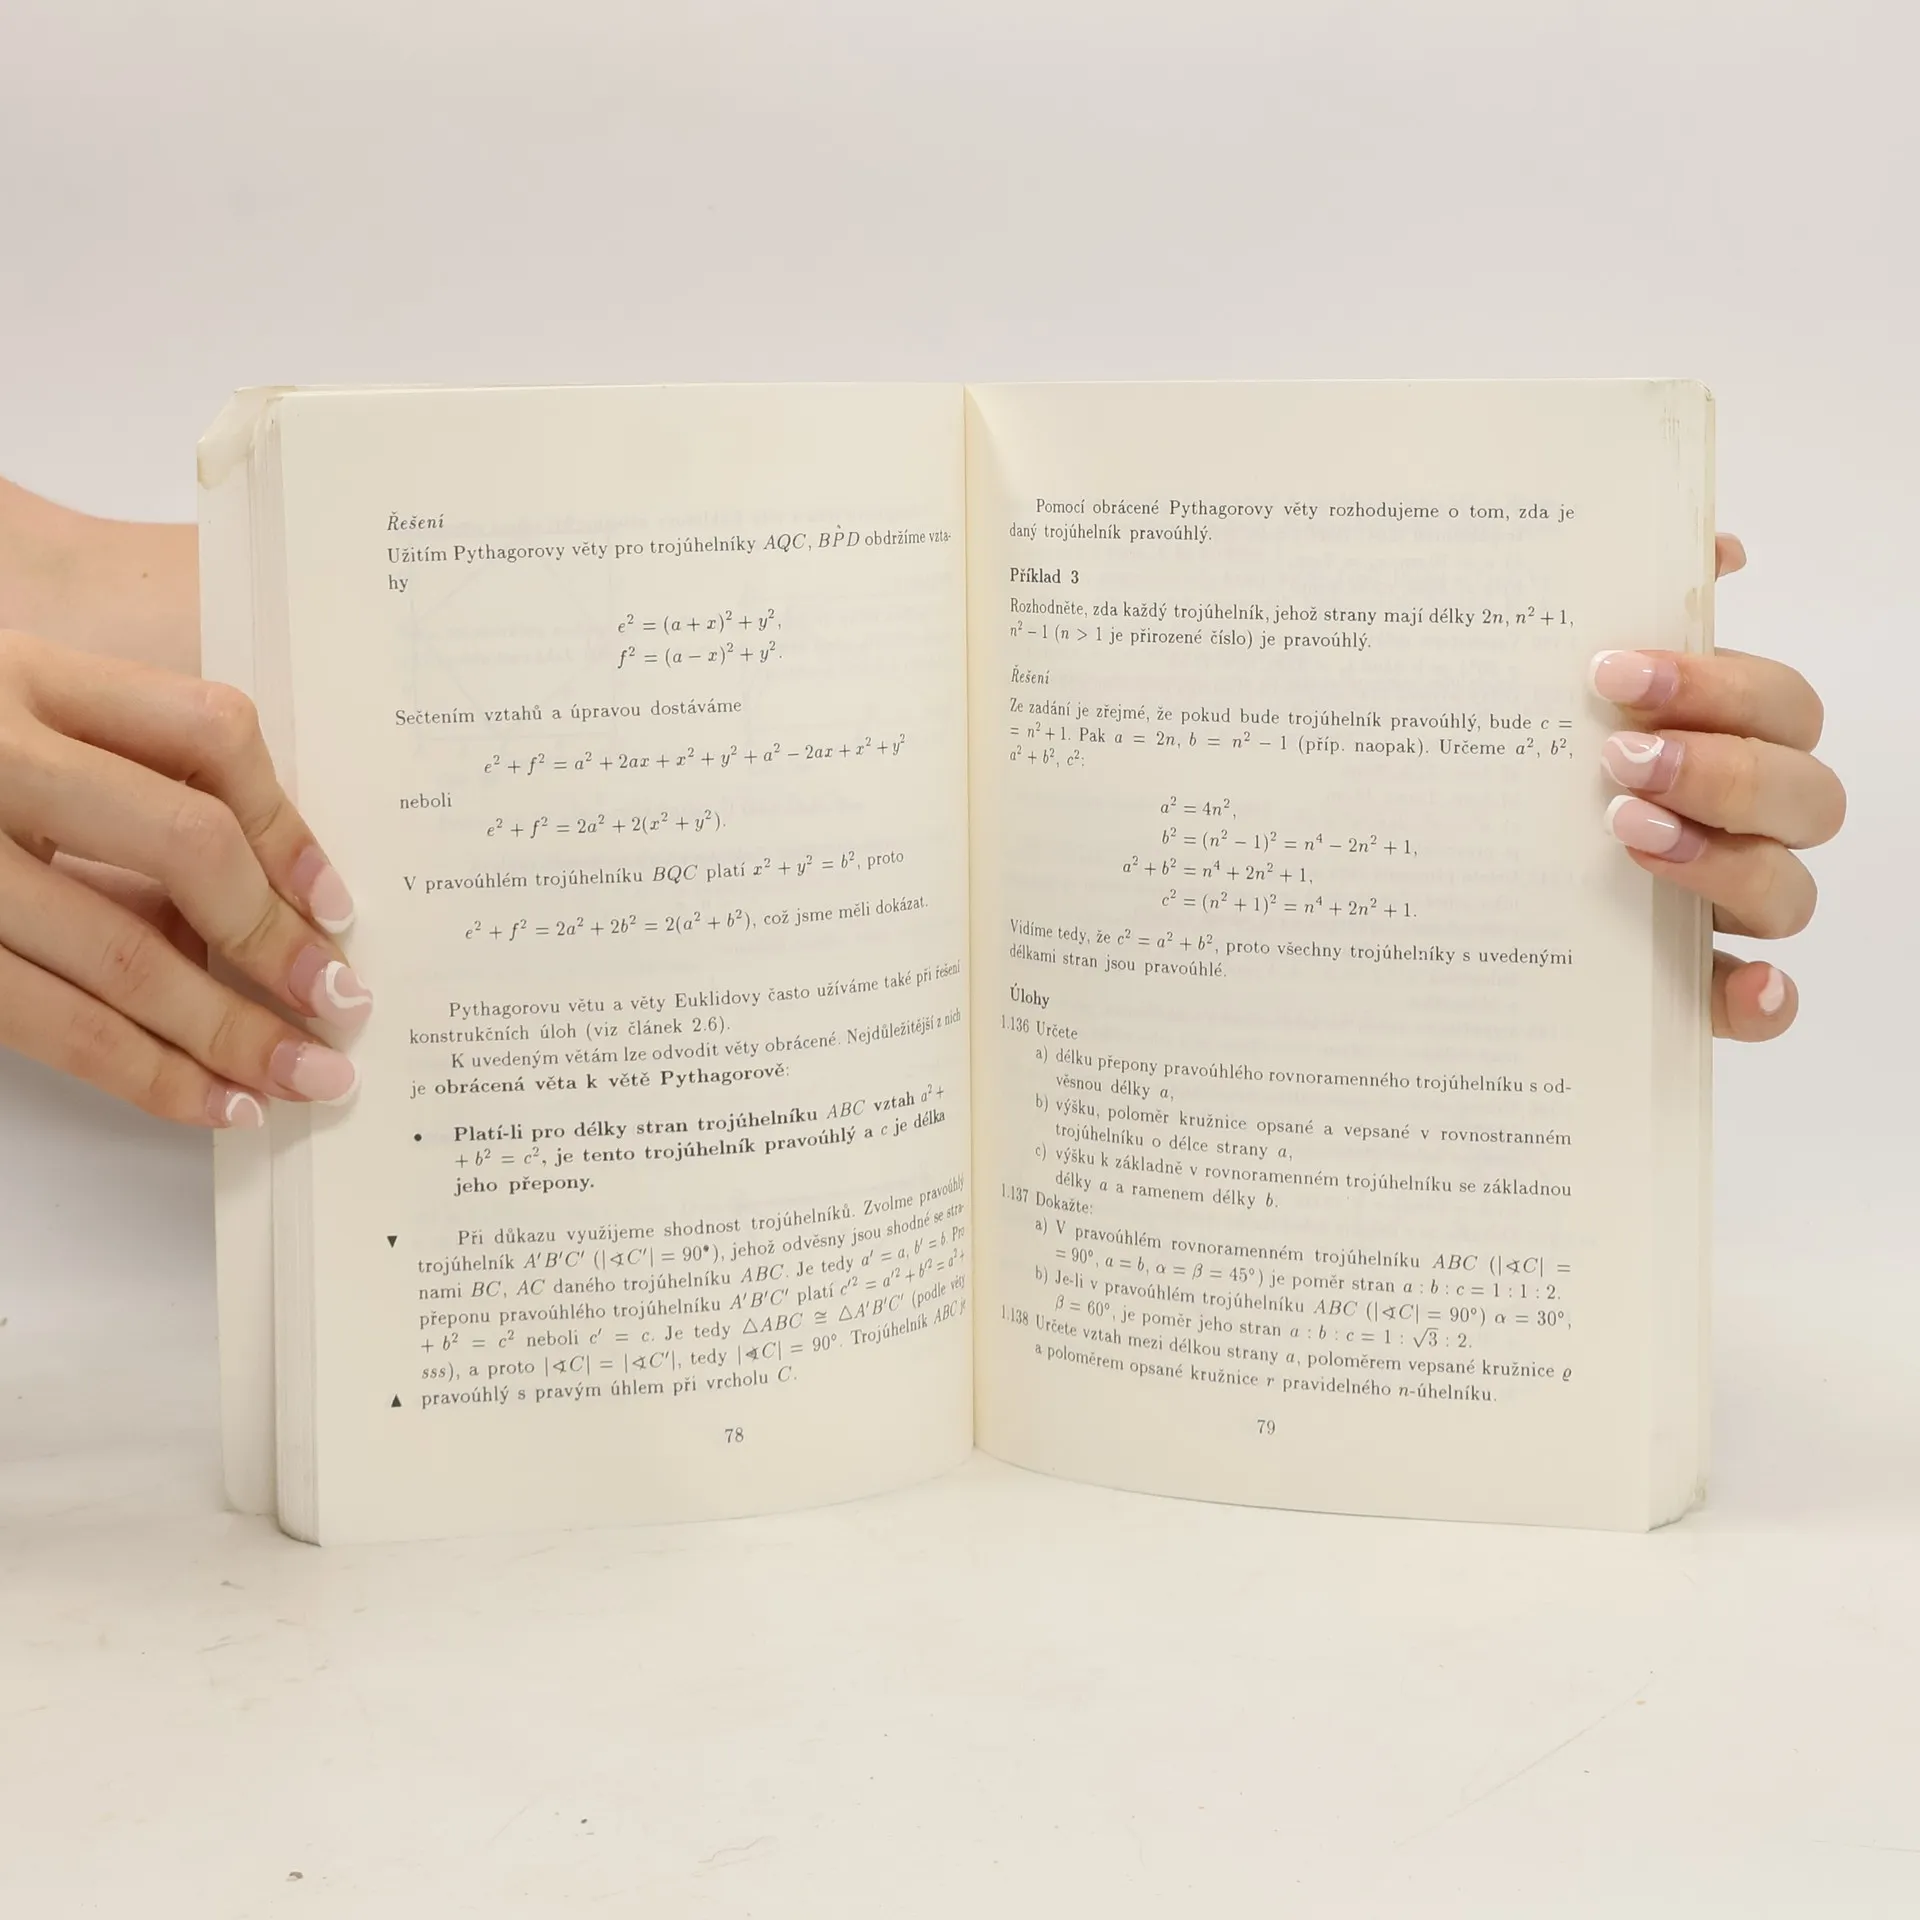 Řešení
Užitím Pythagorovy věty pro trojúhelníky AQC, BPD obdržíme vzta-
hy
e² = (a + x)² + y²,
f² = (a − x)² + y².
Sečtením vztahů a úpravou dostáváme
e² + f² = a² + 2ax + x² + y² + a² − 2ax + x² + y²
neboli
e² + f² = 2a² + 2(x² + y²).
V pravoúhlém trojúhelníku BQC platí x² + y² = b², proto
e² + f² = 2a² + 2b² = 2(a² + b²), což jsme měli dokázat.
Pythagorovu větu a věty Euklidovy často užíváme také při řešení
konstrukčních úloh (viz článek 2.6).
K uvedeným větám lze odvodit věty obrácené. Nejdůležitější z nich
je obrácená věta k větě Pythagorově:
• Platí-li pro délky stran trojúhelníku ABC vztah a² +
+ b² = c², je tento trojúhelník pravoúhlý a c je délka
jeho přepony.
▼ Při důkazu využijeme shodnost trojúhelníků. Zvolme pravoúhlý
trojúhelník A′B′C′ (|∢C′| = 90°), jehož odvěsny jsou shodné se stra-
nami BC, AC daného trojúhelníku ABC. Je tedy a′ = a, b′ = b. Pro
přeponu pravoúhlého trojúhelníku A′B′C′ platí c′² = a′² + b′² = a² +
+ b² = c² neboli c′ = c. Je tedy △ABC ≅ △A′B′C′ (podle věty
sss), a proto |∢C| = |∢C′|, tedy |∢C| = 90°. Trojúhelník ABC je
▲ pravoúhlý s pravým úhlem při vrcholu C.
78
Pomocí obrácené Pythagorovy věty rozhodujeme o tom, zda je
daný trojúhelník pravoúhlý.
Příklad 3
Rozhodněte, zda každý trojúhelník, jehož strany mají délky 2n, n² + 1,
n² − 1 (n > 1 je přirozené číslo) je pravoúhlý.
Řešení
Ze zadání je zřejmé, že pokud bude trojúhelník pravoúhlý, bude c =
= n² + 1. Pak a = 2n, b = n² − 1 (příp. naopak). Určeme a², b²,
a² + b², c²:
a² = 4n²,
b² = (n² − 1)² = n⁴ − 2n² + 1,
a² + b² = n⁴ + 2n² + 1,
c² = (n² + 1)² = n⁴ + 2n² + 1.
Vidíme tedy, že c² = a² + b², proto všechny trojúhelníky s uvedenými
délkami stran jsou pravoúhlé.
Úlohy
1.136 Určete
a) délku přepony pravoúhlého rovnoramenného trojúhelníku s od-
věsnou délky a,
b) výšku, poloměr kružnice opsané a vepsané v rovnostranném
trojúhelníku o délce strany a,
c) výšku k základně v rovnoramenném trojúhelníku se základnou
délky a a ramenem délky b.
1.137 Dokažte:
a) V pravoúhlém rovnoramenném trojúhelníku ABC (|∢C| =
= 90°, a = b, α = β = 45°) je poměr stran a : b : c = 1 : 1 : 2.
b) Je-li v pravoúhlém trojúhelníku ABC (|∢C| = 90°) α = 30°,
β = 60°, je poměr jeho stran a : b : c = 1 : √3 : 2.
1.138 Určete vztah mezi délkou strany a, poloměrem vepsané kružnice ϱ
a poloměrem opsané kružnice r pravidelného n-úhelníku.
79